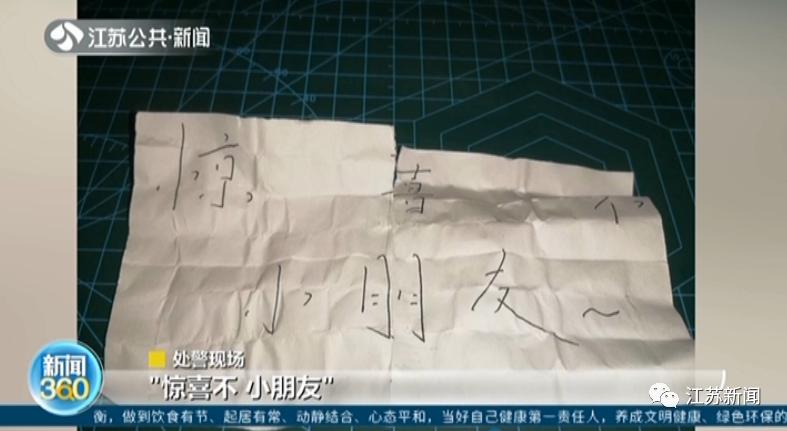 江苏公共·新闻
惊喜不
小朋友~
处警现场
"惊喜不 小朋友"
新闻
360
江苏新闻
衡，做到饮食有节、起居有常、动静结合、心态平和，当好自己健康第一责任人，养成文明健康、绿色环保的